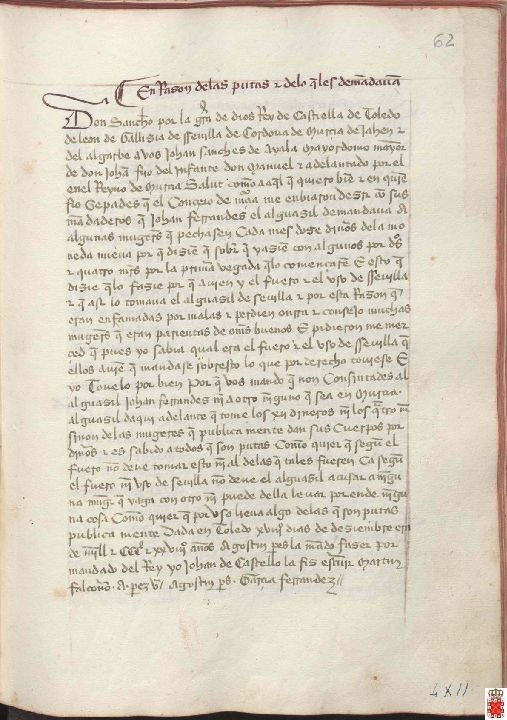 62
En Rason de las putas & de lo q̄ les demādavā
Don Sancho por la grā de dios Rey de Castiella de Toledo
de leon de Gallisia de sseuilla de Cordoua de Murcia de Jahen &
del algarbe A vos Johan sanches de Ayala Mayordomo mayor
de don Johā fijo del Infante don Manuel & adelantado por el
en el Reyno de Murcia Salut como a aql̄ q̄ quiero biē & en quiē
fio Sepades q̄ el Conçeio de mᵃ me enbiaron desir cō sus
mādaderos q̄ Johan ferrandes el alguasil demandaua A
algunas mugeres q̄ pechasen Cada mes dose dinōs de la mo
neda nueua por q̄ disiē q̄ yasiē con algunos por ds̄
& quatro mr̄s por la primā vegada q̄ lo comentasē E esto q̄
disie q̄ lo fasie por q̄ auien y el fuero & el vso de sseuilla
& q̄ asi lo tomaua el alguasil de seuilla & por esta Rason q̄
eran enfamadas por malas & perdien onrra & conseio muchas
mugers̄ q̄ eran parientas de oms̄ buenos E pidieron me mer
çed q̄ pues yo sabia qual era el fuero & el vso de sseuilla q̄
ellos auiē q̄ mandase sobresto lo que por derecho touiese E
yo Touelo por bien Por q̄ vos mando q̄ non Consintades al
alguasil Johan ferrandes nī a otro nīguno q̄ sea en Murcia
alguasil daqui adelante q̄ tome los xii dineros nī los q̄tro mr̄
sinon de las mugeres q̄ publica mente dan sus Cuerpos por
dinōs & es sabido a todos q̄ son putas Como quier q̄ segūt el
fuero nō deue tomar esto nī al de las q̄ tales fueren Ca segūt
el fuero nī vso de seuilla nō deue el alguasil acusar a nīgu
na mugr̄ q̄ yaga con otro nī puede della leuar por ende nīgu
na cosa Como quier q̄ por vso lieua algo de las q̄ son putas
publica mente Dada en Toledo xviijᵒ dias de desiembre era
de mill & CCC & xxviijᵒ años Agostin ps̄ la mādo faser por
mandado del Rey yo Johan de Castello la fis escriuir Martin
falconō. A. perez v̄ Agostin ps̄. Garçia ferrandez
LXII